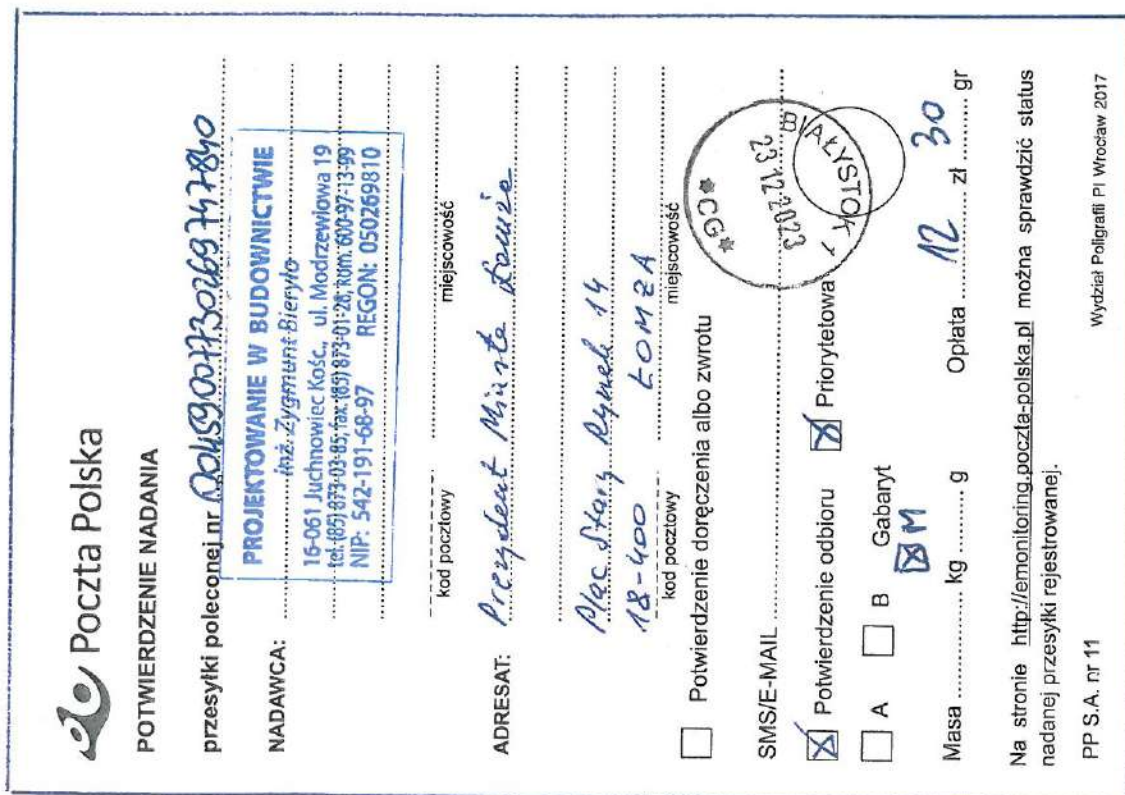 Poczta Polska
POTWIERDZENIE NADANIA
przesyłki poleconej nr 00459007730269747840
NADAWCA:
PROJEKTOWANIE W BUDOWNICTWIE
inż. Zygmunt Bieryło
16-061 Juchnowiec Kośc., ul. Modrzewiowa 19
tel. (85) 873-03-85, fax. (85) 873-01-28, kom. 600-97-13-99
NIP: 542-191-68-97 REGON: 050269810
kod pocztowy miejscowość
ADRESAT: Prezydent Miasta Łomża
Plac Stary Rynek 14
18-400 ŁOMŻA
kod pocztowy miejscowość
Potwierdzenie doręczenia albo zwrotu
SMS/E-MAIL
Potwierdzenie odbioru Priorytetowa
A B Gabaryt
M
BIAŁYSTOK 1
23.12.2023
*GCG*
Masa kg g Opłata 12 zł 30 gr
Na stronie http://emonitoring.poczta-polska.pl można sprawdzić status
nadanej przesyłki rejestrowanej.
PP S.A. nr 11 Wydział Poligrafii PI Wrocław 2017